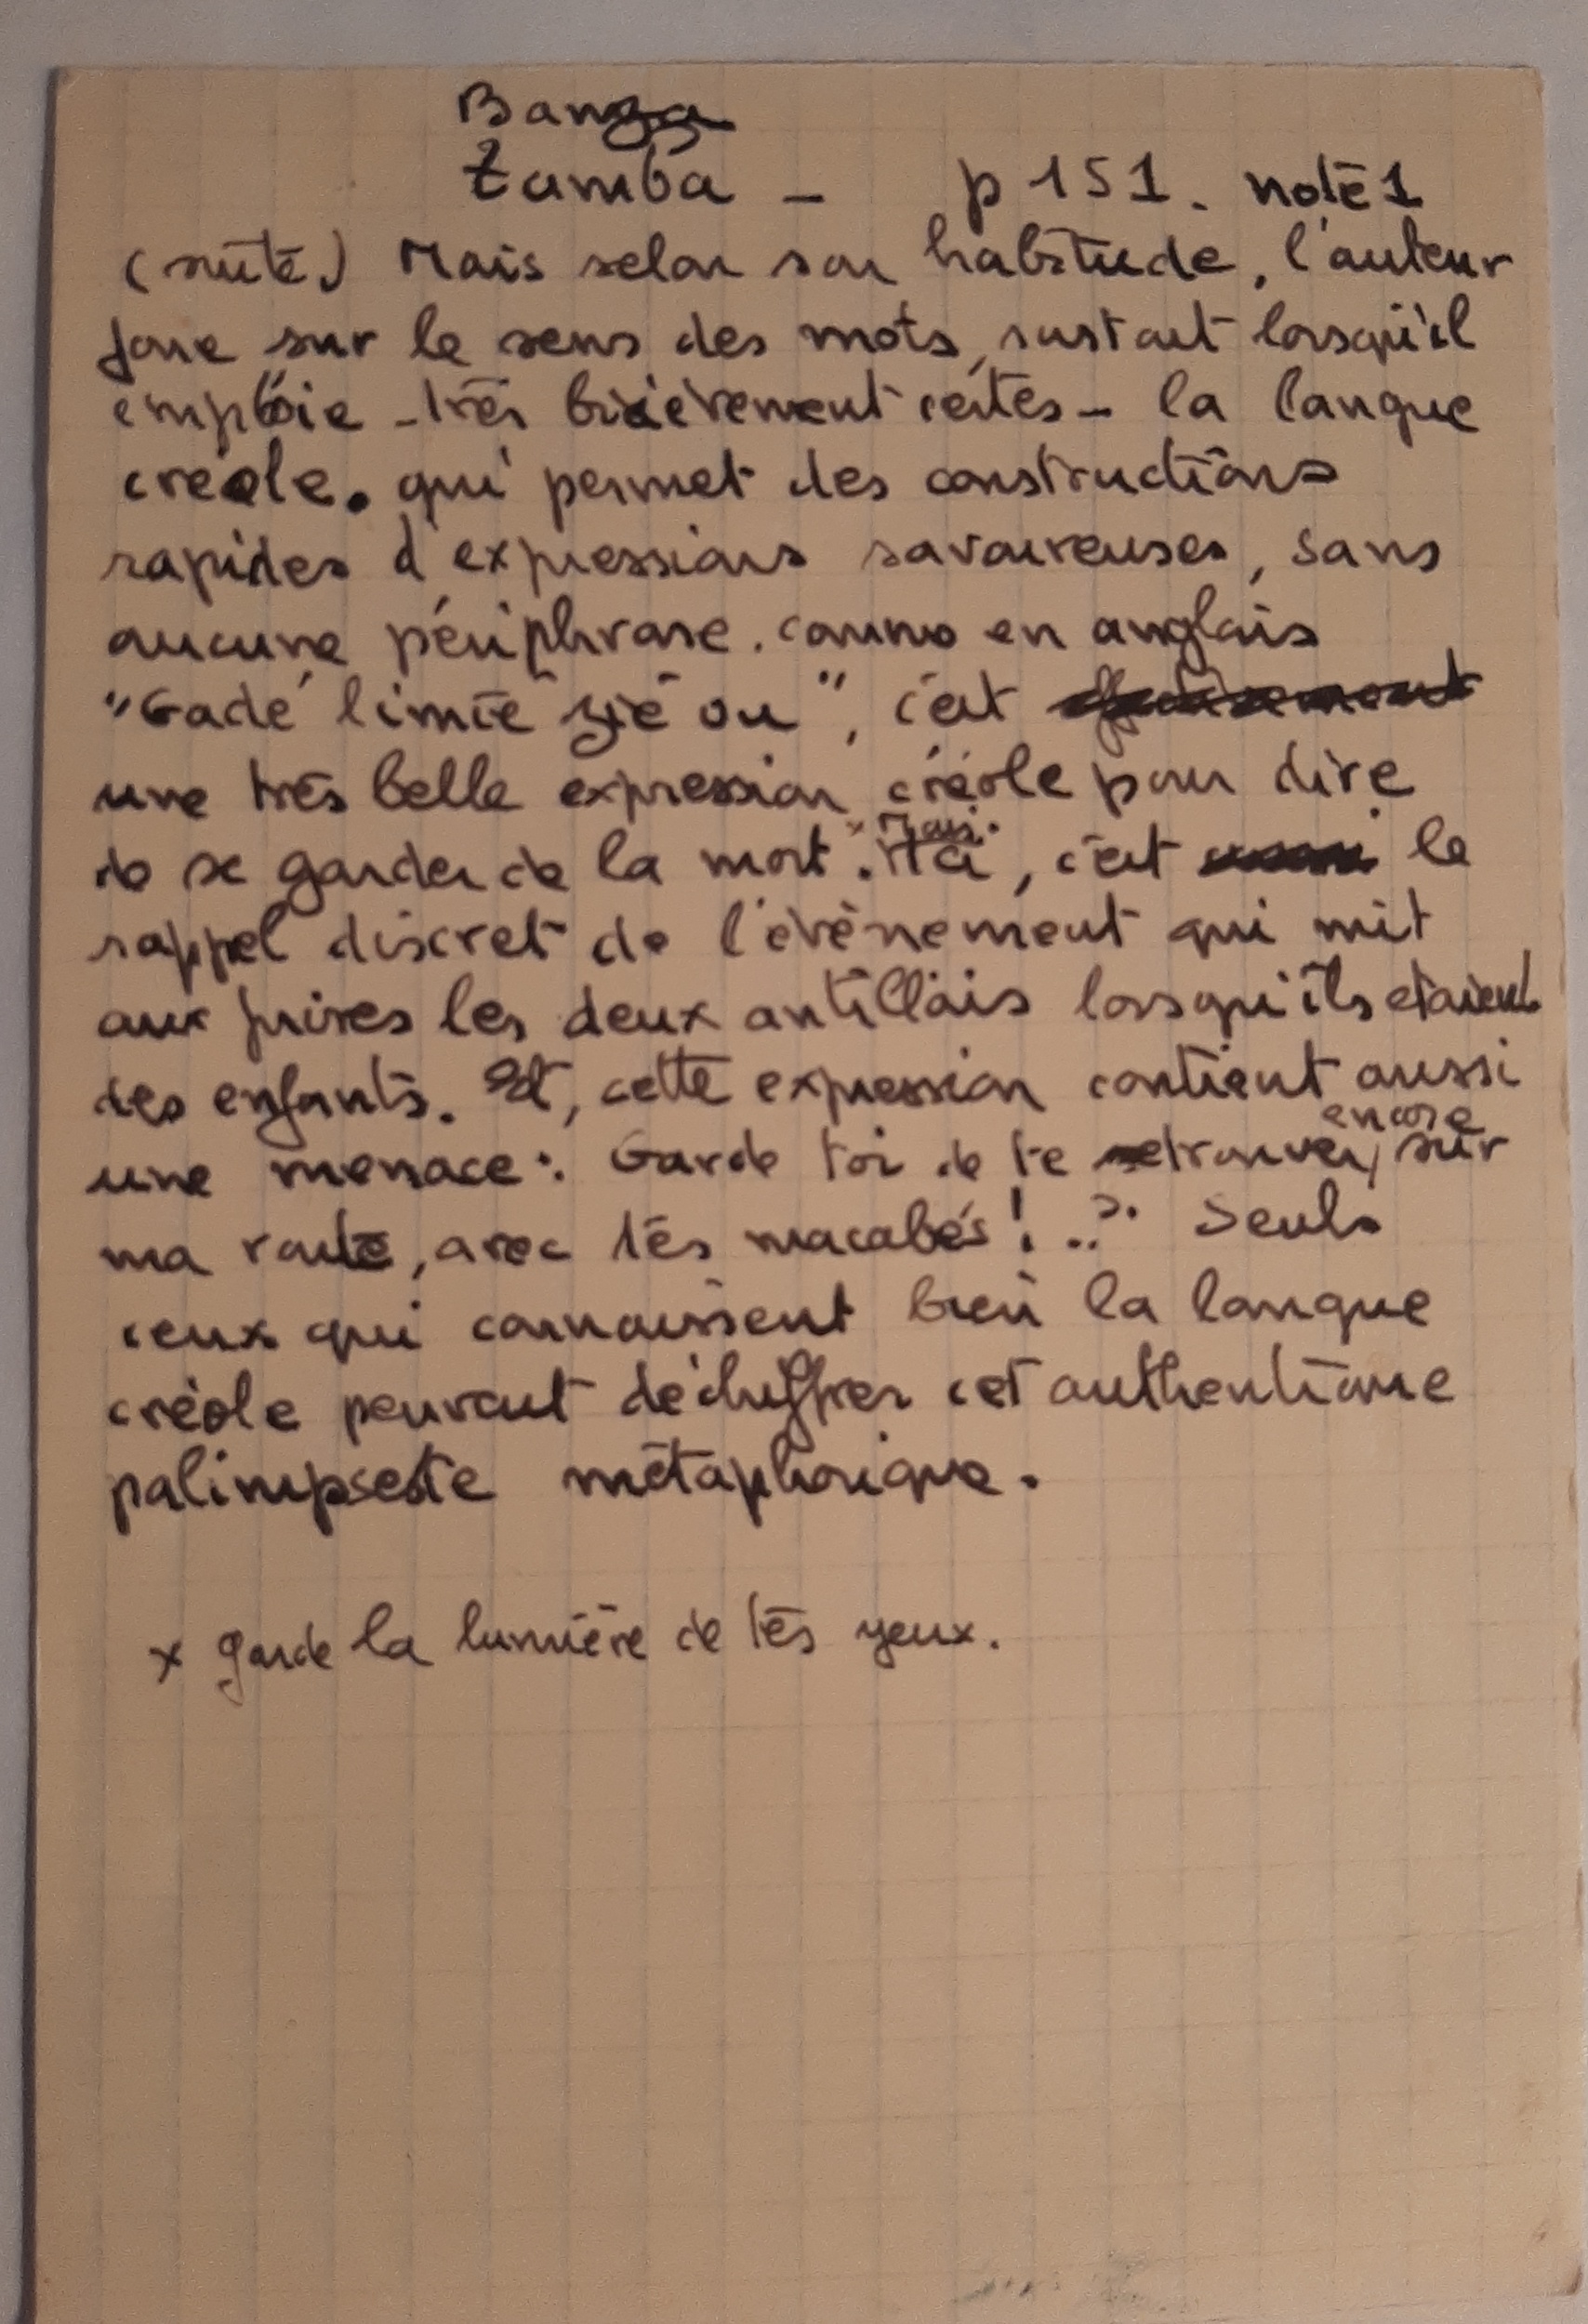 Banza
Zamba - p 151. note 1
(suite) Mais selon son habitude, l'auteur
joue sur le sens des mots, surtout lorsqu'il
emploie - très brièvement certes - la langue
créole. qui permet des constructions
rapides d'expressions savoureuses, sans
aucune périphrase. comme en anglais
"Gadé limiè zié ou", c'est
une très belle expression créole pour dire
de se garder de la mort. x Mais. Ici, c'est le
rappel discret de l'évènement qui mit
aux prises les deux antillais lorsqu'ils étaient
des enfants. Et, cette expression contient aussi
une menace : Garde toi de te retrouver, encore sur
ma route, avec tes macabés ! ..? Seuls
ceux qui connaissent bien la langue
créole peuvent déchiffrer cet authentique
palimpseste métaphorique.
x garde la lumière de tes yeux.